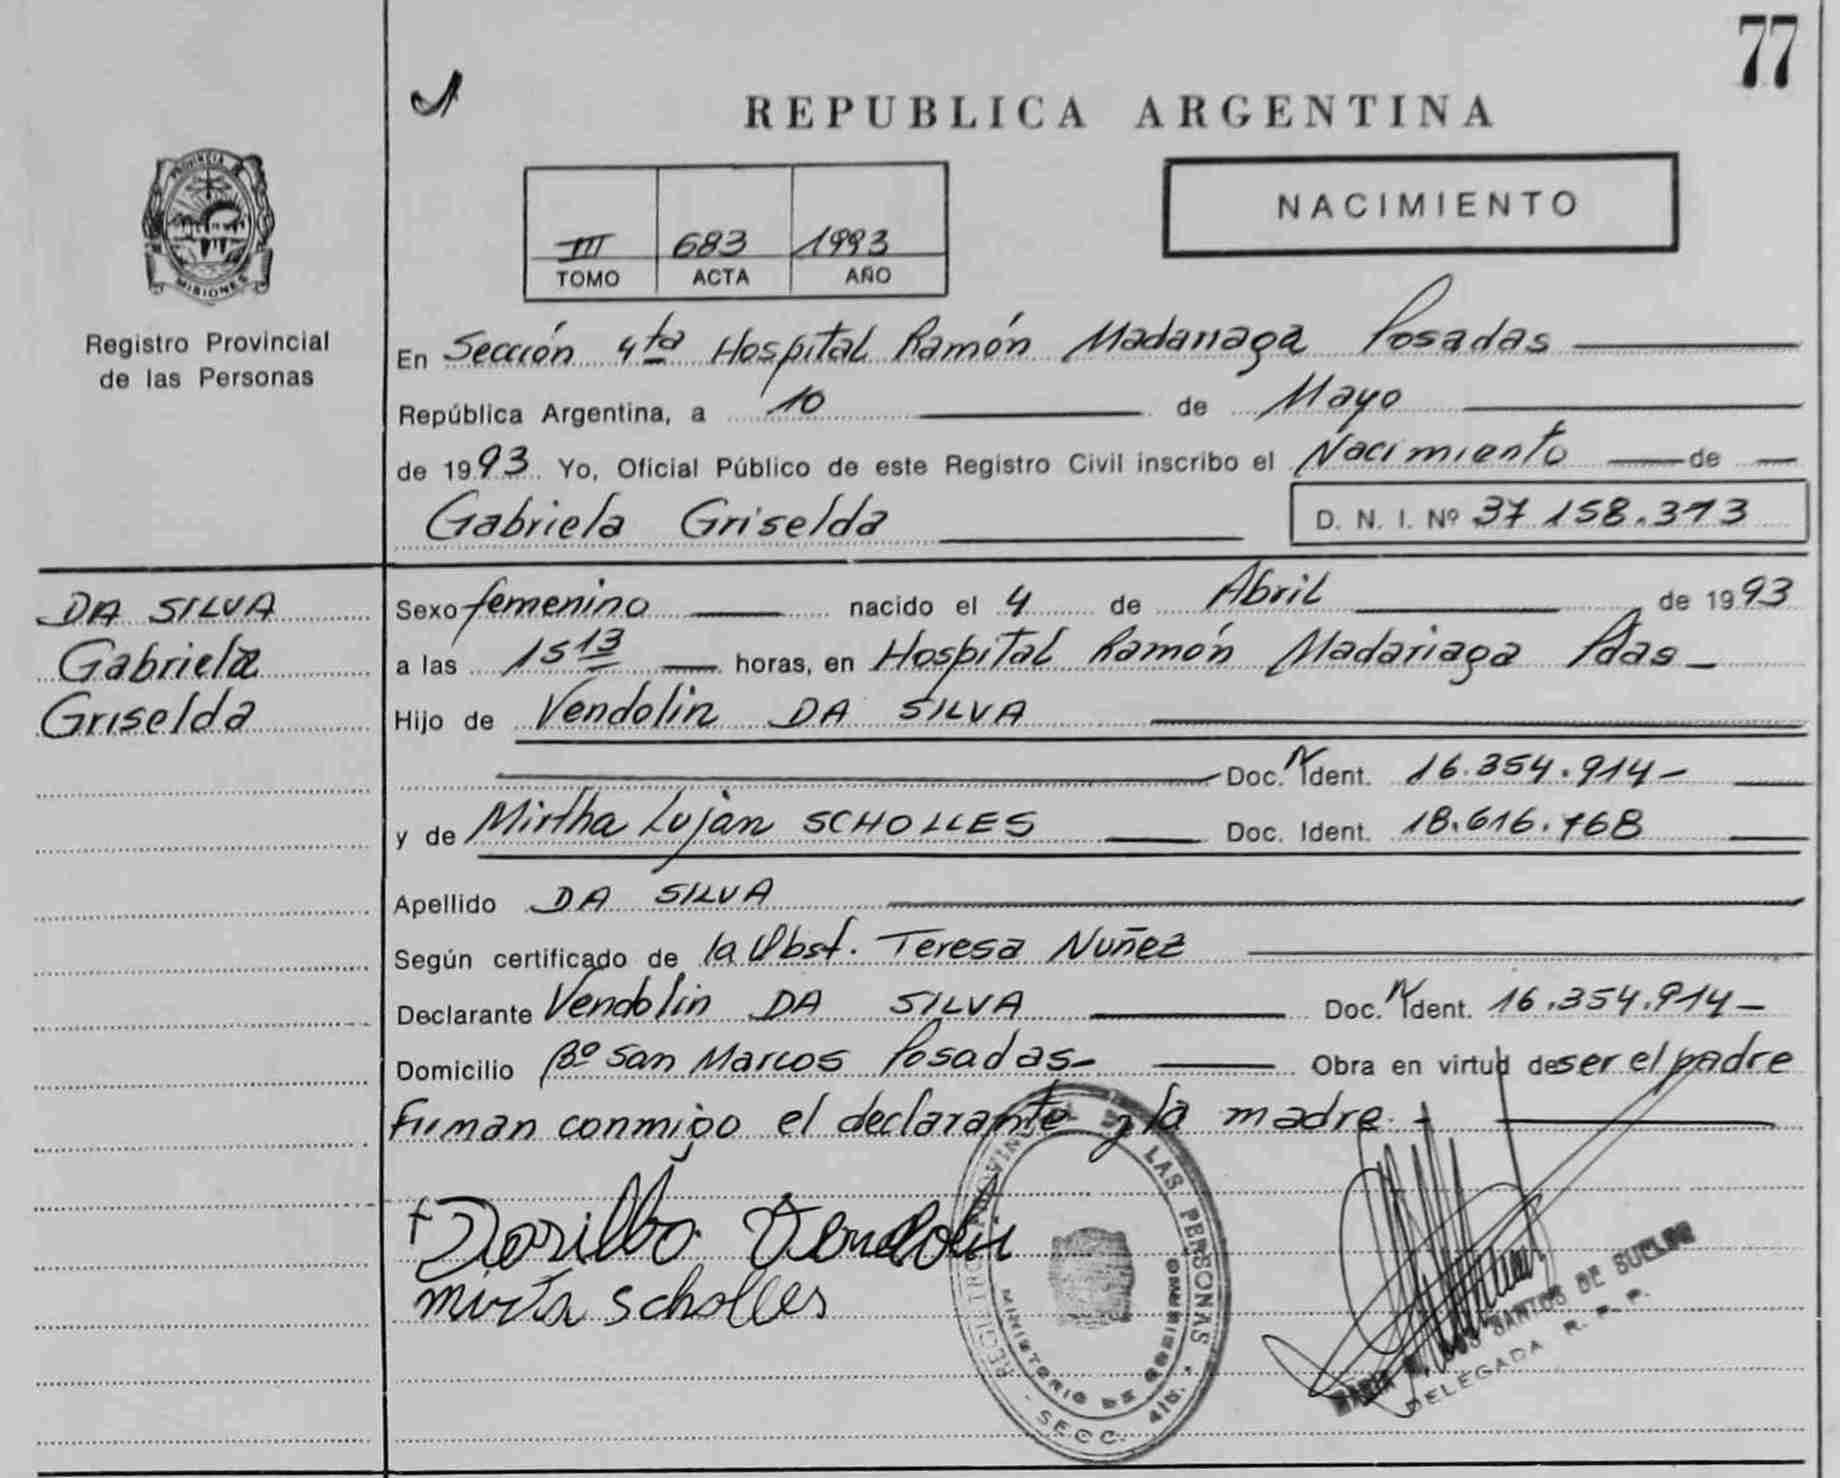 77
REPUBLICA ARGENTINA
PROVINCIA DE
MISIONES
Registro Provincial
de las Personas
III 683 1993
TOMO ACTA AÑO
NACIMIENTO
En Sección 4ta Hospital Ramón Madariaga Posadas
República Argentina, a 10 de Mayo
de 1993 Yo, Oficial Público de este Registro Civil inscribo el Nacimiento de
Gabriela Griselda D. N. I. Nº 37 158.373
DA SILVA
Gabriela
Griselda
Sexo femenino nacido el 4 de Abril de 1993
a las 15 13 horas, en Hospital Ramón Madariaga Pdas
Hijo de Vendolin DA SILVA
Doc. Ident. 16.354.914
y de Mirtha Luján SCHOLLES Doc. Ident. 18.616.768
Apellido DA SILVA
Según certificado de la Obst. Teresa Nuñez
Declarante Vendolin DA SILVA Doc. Ident. 16.354.914
Domicilio Bº San Marcos Posadas Obra en virtud de ser el padre
Firman conmigo el declarante y la madre.
mirta scholles
REGISTRO PROVINCIAL DE LAS PERSONAS
MINISTERIO DE GOBIERNO
SECC. 4ta.
SANTOS DE SUELDO
DELEGADA R. P. P.